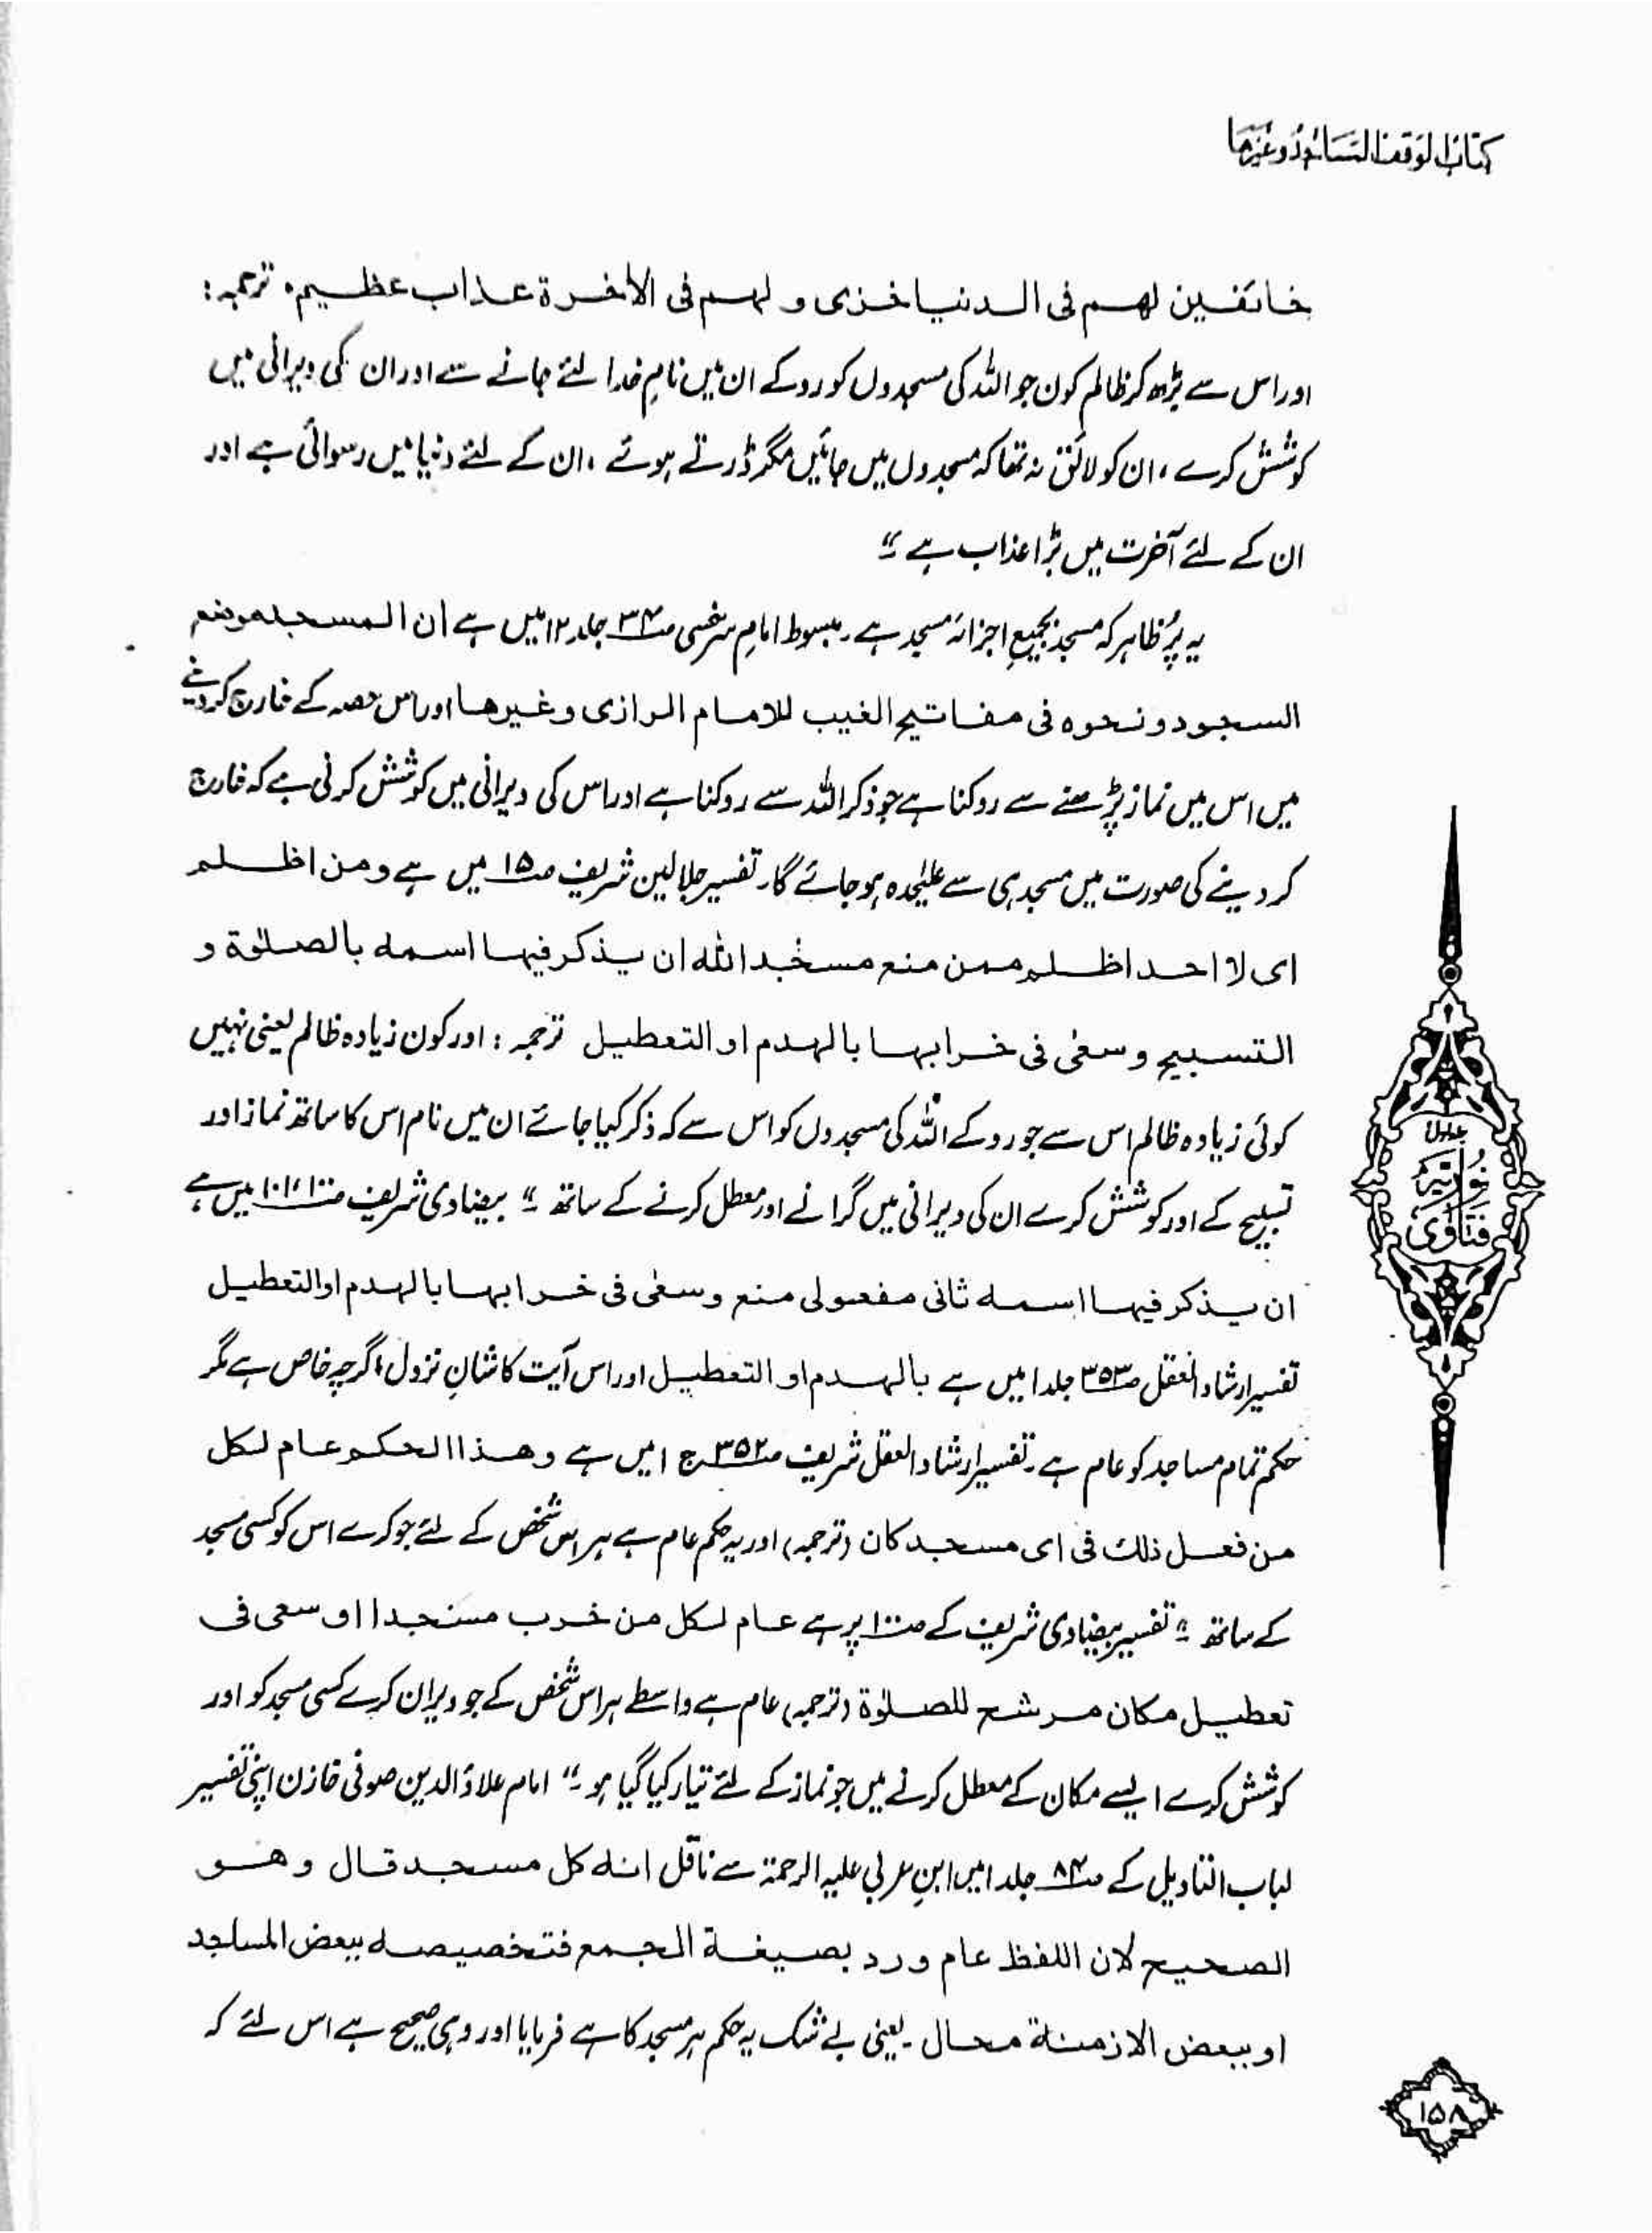 کتاب الوقف المساجد وغیرھا
خائفین لھم فی الدنیا خزی و لھم فی الاٰخرة عذاب عظیم۔ ترجمہ:
اور اس سے بڑھ کر ظالم کون جو اللہ کی مسجدوں کو روکے ان میں نامِ خدا لئے جانے سے اور ان کی ویرانی میں
کوشش کرے، ان کو لائق نہ تھا کہ مسجدوں میں جائیں مگر ڈرتے ہوئے، ان کے لئے دنیا میں رسوائی ہے اور
ان کے لئے آخرت میں بڑا عذاب ہے۔"
یہ پُر ظاہر کہ مسجد بجمیعِ اجزائہ مسجد ہے۔ مبسوط امامِ سرخسی ص۳۴ جلد ۱۲ میں ہے ان المسجد موضع
السجود و نحوہ فی مفاتیح الغیب للامام الرازی وغیرھا اور اس حصہ کے خارج کر دینے
میں اس میں نماز پڑھنے سے روکنا ہے جو ذکر اللہ سے روکنا ہے اور اس کی ویرانی میں کوشش کرنی ہے کہ خارج
کر دینے کی صورت میں مسجد ہی سے علیٰحدہ ہو جائے گا۔ تفسیر جلالین شریف ص۱۵ میں ہے ومن اظلم
ای لا احد اظلم ممن منع مسٰجد اللہ ان یذکر فیھا اسمہ بالصلٰوة و
التسبیح وسعٰی فی خرابھا بالھدم او التعطیل ترجمہ: اور کون زیادہ ظالم یعنی نہیں
کوئی زیادہ ظالم اس سے جو روکے اللہ کی مسجدوں کو اس سے کہ ذکر کیا جائے ان میں نام اس کا ساتھ نماز اور
تسبیح کے اور کوشش کرے ان کی ویرانی میں گرانے اور معطل کرنے کے ساتھ۔" بیضاوی شریف ص۱۰۰،۱۰۱ میں ہے
ان یذکر فیھا اسمہ ثانی مفعولی منع وسعٰی فی خرابھا بالھدم او التعطیل
تفسیر ارشاد العقل ص۳۵۳ جلد ۱ میں ہے بالھدم او التعطیل اور اس آیت کا شانِ نزول اگرچہ خاص ہے مگر
حکم تمام مساجد کو عام ہے۔ تفسیر ارشاد العقل شریف ص۳۵۲ ج ۱ میں ہے وھذا الحکم عام لکل
من فعل ذلک فی ای مسجد کان (ترجمہ) اور یہ حکم عام ہے ہر اس شخص کے لئے جو کرے اس کو کسی مسجد
کے ساتھ۔" تفسیر بیضاوی شریف کے ص۱۰۰ پر ہے عام لکل من خرب مسجدا او سعی فی
تعطیل مکان مرشح للصلٰوة (ترجمہ) عام ہے واسطے ہر اس شخص کے جو ویران کرے کسی مسجد کو اور
کوشش کرے ایسے مکان کے معطل کرنے میں جو نماز کے لئے تیار کیا گیا ہو۔" امام علاؤ الدین صوفی خازن اپنی تفسیر
لباب التاویل کے ص۸۴ جلد ۱ میں ابنِ عربی علیہ الرحمۃ سے ناقل انہ کل مسجد قال وھو
الصحیح لان اللفظ عام ورد بصیغة الجمع فتخصیصہ ببعض المساجد
او ببعض الازمنة محال۔ یعنی بے شک یہ حکم ہر مسجد کا ہے فرمایا اور وہی صحیح ہے اس لئے کہ
جلد اول
فتاوٰی نوریہ
۱۵۸